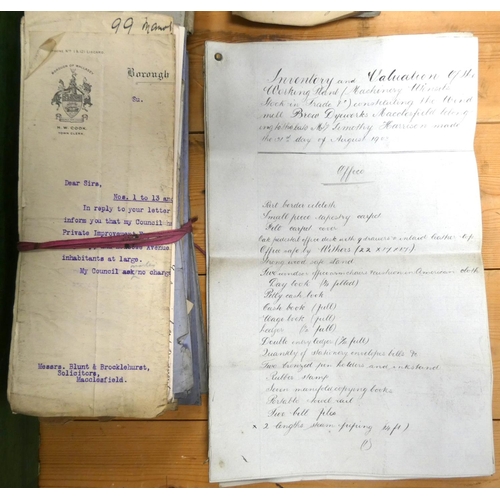 99 Manor
BOROUGH OF WALLASEY
Borough
H. W. COOK,
TOWN CLERK.
Tu.
Dear Sirs,
Nos. 1 to 13 an
In reply to your letter
inform you that my Council h
Private Improvement
Avenue
inhabitants at large.
My Council ask no charge
Messrs. Blunt & Brocklehurst,
Solicitors,
Macclesfield.
Inventory and Valuation of the
Working Plant, Machinery Utensils
Stock in Trade &c constituting the Wind
mill Brow Dyeworks Macclesfield belong
ing to the late Mr Timothy Harrison made
the day of August
Office
Part border oilcloth
Small piece tapestry carpet
Felt carpet cover
Oak pedestal office desk with 9 drawers & inlaid leather top
Office safe by Withers
wood cap stand
Two windsor office armchairs cushions in American cloth
Day book (filled)
Petty cash book
Cash book (full)
Wage book (full)
Ledger (full)
Double entry ledger (full)
Quantity of stationery envelopes bills &c
Two bronzed pen holders and inkstand
Rubber stamp
Seven manifold copying books
Portable towel rail
Two bill files
2 lengths steam piping
(1)